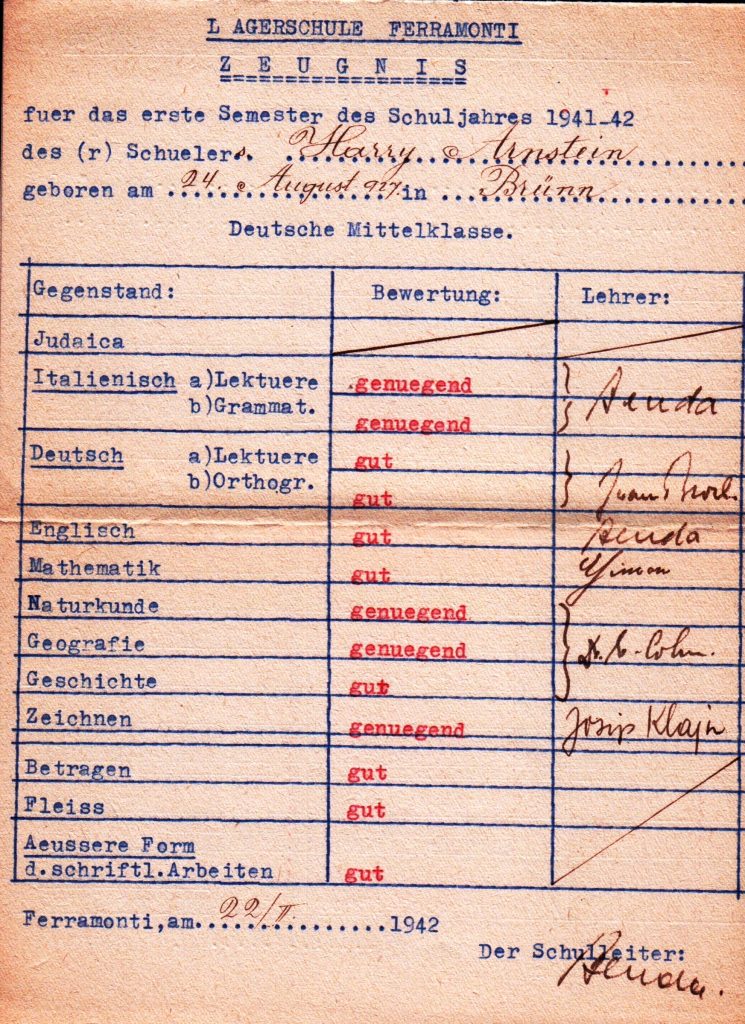 L AGERSCHULE FERRAMONTI
Z E U G N I S
fuer das erste Semester des Schuljahres 1941-42
des (r) Schuelers. Harry Arnstein
geboren am 24. August 927. in Brünn
Deutsche Mittelklasse.
Gegenstand: Bewertung: Lehrer:
Judaica
Italienisch a)Lektuere genuegend
b)Grammat. genuegend
Deutsch a)Lektuere gut
b)Orthogr. gut
Englisch gut
Mathematik gut
Naturkunde genuegend
Geografie genuegend
Geschichte gut
Zeichnen genuegend Josip Klajn
Betragen gut
Fleiss gut
Aeussere Form
d.schriftl.Arbeiten gut
Ferramonti,am 22/II. 1942
Der Schulleiter: